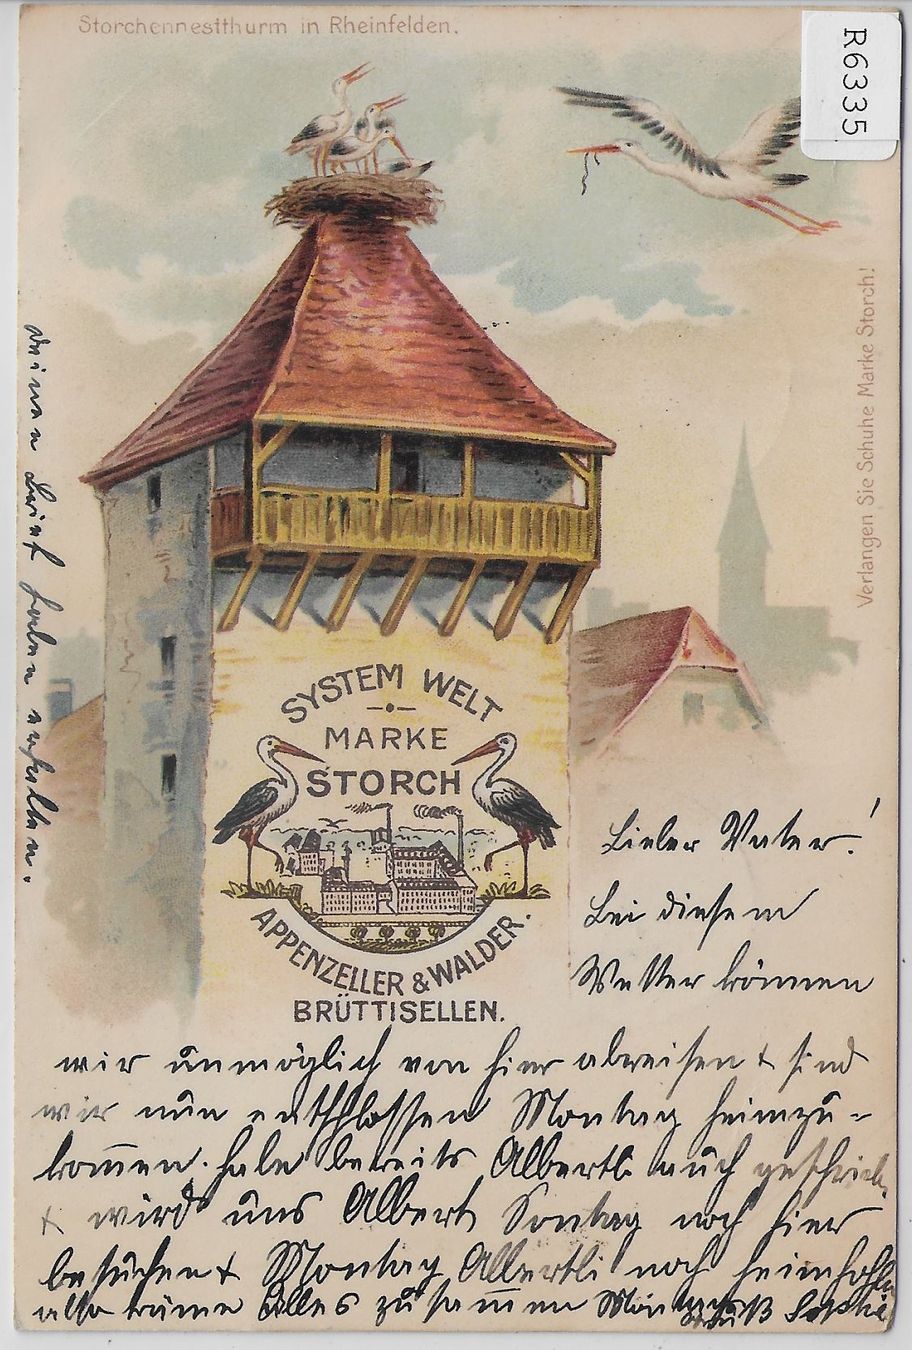 Storchennestthurm in Rheinfelden.
R6335
Verlangen Sie Schuhe Marke Storch!
SYSTEM WELT
MARKE
STORCH
APPENZELLER & WALDER.
BRÜTTISELLEN.
Lieber Vater!
Bei diesem
Wetter können
wir unmöglich von hier abreisen & sind
wir nun entschlossen Montag heimzu-
kom̄en. habe bereits Albertli auch geschrieb.
& wird uns Albert Sontag noch hier
besuchen & Montag Albertli noch heimhohlen
also käme Alles zusam̄en Montag Gruß Sophie
deinen Brief haben erhalten.